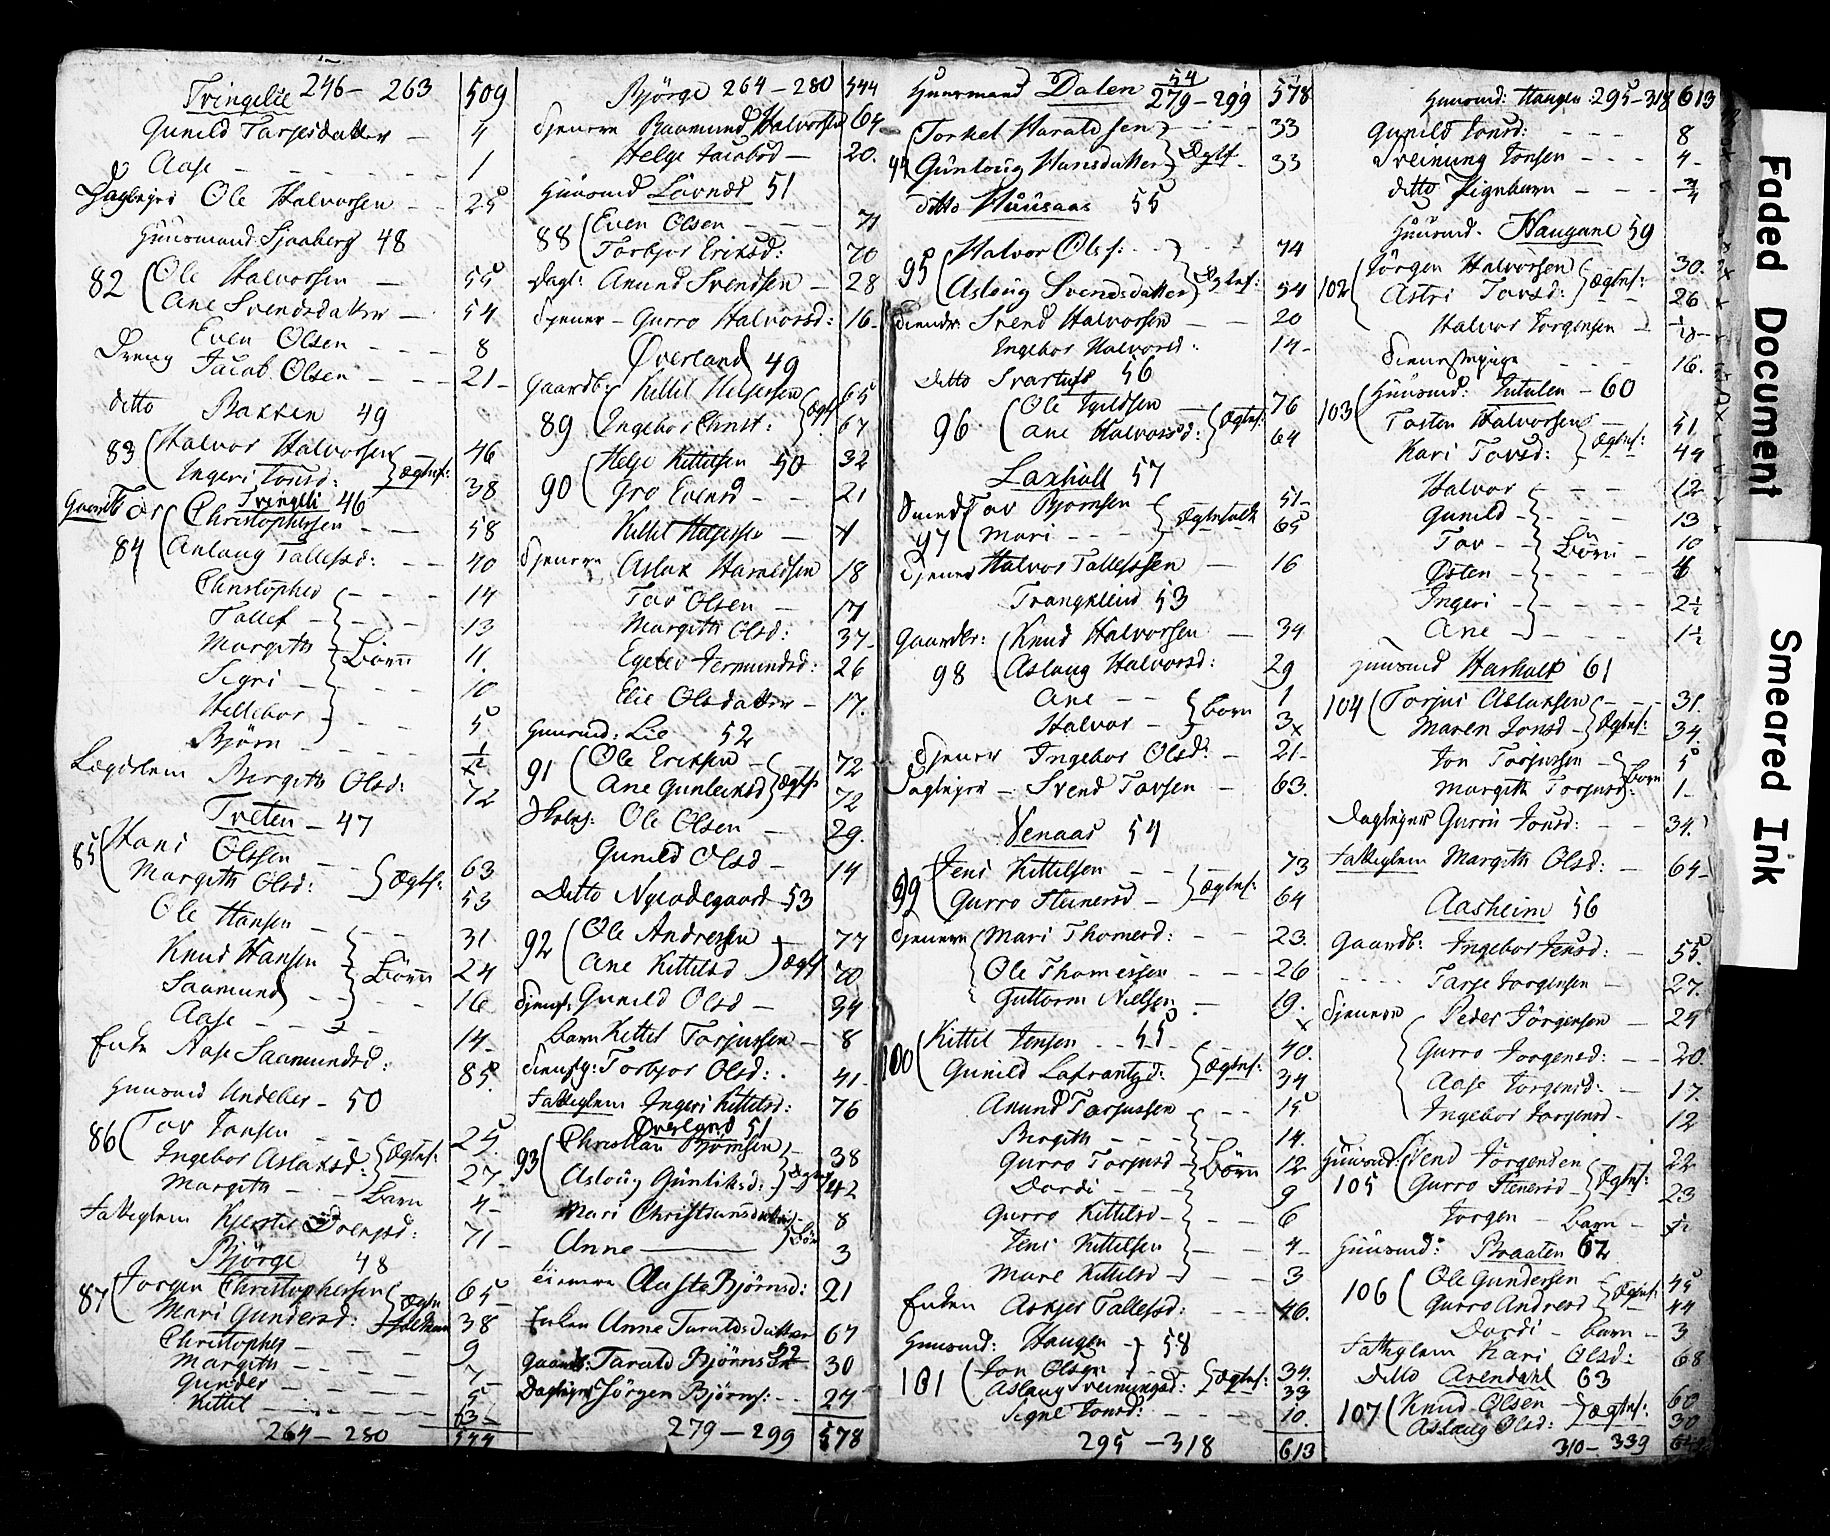 Tringelie 246 – 263 509
Gunild Tarjesdatter – 4
Aase – – – 1
Ole Halvorsen – – 25
Huusmand Sjaaberg 48
82 Ole Halvorsen – 55
Ane Svendsdatter – 54
Even Olsen – – – 8
Dreng Jacob Olsen – – – 21
ditto Bakken 49
83 Halvor Halvorsen 46
Ingeri Tovsd: Ægtef: 38
Tringelie 46
Christophersen – – 58
84 Anlaug Tallefsd: – – 40
Christopher – – – 14
Tallef – – – 13
Margith Börn 11
Sigri – – 10
Hellebor – – 5
Björn – – – ½
Lægdslem Birgith Olsd: 72
Treten – 47
85 Hans Olssen – 63
Margith Olsd: Ægtf: 53
Ole Hansen – – 31
Knud Hansen Börn 24
Saamund – – 16
Aase – – – 14
Enke Aase Saamundsd: 85
Huusmd Undeber – 50
86 Tov Jonsen – – 25
Ingebor Aslaksd: Ægtef: 27
Margith – – Barn 4
Fatteglem 71
Björge 48
87 Jörgen Christophersen 65
Mari Gundersd: 38
Christopher – – 9
Margith – – – 7
Gunder – – – 5
Kittel – – – 3
264 – 280 544
Björge 264 – 280 544
Tjenere Saamund Halvorsen 64
Helge Jacobsd – 20
Huusmd Lövnes 51
88 Even Olsen – – 71
Torbjor Eriksd: 70
Dagl: Anund Svendsen – 28
Tjener – Gurro Halvorsd: 16
Överland 49
Gaardb: Kittil Helgesen 65
89 Ingebor Christ: Ægtf 67
Helge Kittilsen 50 32
90 Gro Evensd – – 21
Kittil Helgesen – 1
Tjenere Aslak Haraldsen 18
Tov Olsen – 17
Margith Olsd: 37
Egelev Jermundsd: 26
Elie Olsdatter – 17
Huusmd: Lie 52
91 Ole Eriksen – 72
Ane Gunleiksd Ægtf: 72
Ole Olsen – 29
Gunild Olsd – 14
Ditto Nyeodegaard 53
92 Ole Andressen 77
Ane Kittilsd Ægtf 70
Gunild Olsd – 34
Barn Kittil Torjussen – 8
Torbjor Olsd: 41
Fatteglem Ingeri Kittilsd: 76
Överland 51
93 Christian Björnsen – 38
Asloug Gunliksd: 42
Mari Christiansdatter 8
Anne 3
Tjenere Aaste Björnsd: 21
Enken Anne Taraldsdatter 67
Gaardb: Tarald Björnss 52 30
Dagleier Jörgen Björns: – 27
279 – 299 578
Huusmand Dalen 54 279 – 299 578
94 Torkel Haraldsen – 33
Gunloug Hansdatter Ægtf 33
ditto Huusaas 55
95 Halvor Ols: – – 74
Asloug Svendsdatter Ægtef: 54
Svend Halvorsen – – 20
Ingebor Halvorsd: 14
Ditto Svartuft 56
96 Ole Kjeldsen – 76
Ane Halvorsd: Ægtef: 64
Laxhull 57
Tov Bjornsen – 51
97 Mari – – – Ægtefolk 65
Tjener Halvor Tallefssen – 16
Trangkleiv 53
Gaardbr: Knud Halvorsen – 34
98 Aslaug Halvorsd: 29
Ane – – Born 1
Halvor – 3
Tjener Ingebor Olsd: – 21
Dagleiger – Svend Tovsen – 63
Venaas 54
99 Jens Kittilsen – – 73
Gurro Steinersd – Ægtef: 64
Tjenere Mari Thomesd: – – 23
Ole Thomessen – – 26
Guttorm Nielsen – 19
100 Kittil Jensen – – 55 40
Gunild Lafrantzd: Ægtef: 34
Anund Torjussen – – 15
Birgith – – – 14
Gurro Torjusd – Börn 12
Dordi – – 9
Gurro Kittilsd – – – 6
Jens Kittilsen – – 4
Mare Kittilsd – – 3
Enken Askjer Tallefsd: – – – 46
Huusmd: Haugen 58
101 Jon Olsen 34
Aslaug Sveinungsd: Ægtef: 33
Signe Jonsd: – – – 10
295 – 318 613
Huusmd: Haugen 295 – 318 613
Gunild Jonsd: – – – 8
Sveinung Jonsen – – – 4
ditto Pigebarn – – – ¾
Huusmd. Haugane 59
102 Jörgen Halvorsen 30
Astri Tovsd: Ægtef: 26
Halvor Jorgensen –
Tienestepige – – – 16
103 Huusmd: Jutulen – 60
Tosten Halvorsen – 51
Kari Tovsd: Ægtef: 49
Halvor – – – 12
Gunild – – – 13
Tov – – Börn – 10
Östen – – – – 4
Ingeri – – – – 2½
Ane – – – 1½
Huusmd Harhalt 61
104 Torjus Aslaksen – – 31
Maren Jonsd – Ægtef: 34
Jon Torjussen – Born 5
Margith Torjusd: 1
Dagleiger Gurou Jonsd: – – 34
Fatteglem Margith Olsd: – 64
Aasheim 56
Gaardb: Ingebor Jensd: – 55
Tarje Jorgensen – – 27
Tjenere Peder Jörgensen – 24
Gurro Jorgensd: – – 20
Aase Jorgensd: – 17
Ingebor Jorgensd – 12
Huusmd: Svend Jorgensen 22
105 Gurro Stenersd – Ægtef: 23
Jorgen – Barn –
Huusmd: Braaten 62
106 Ole Gundersen – Ægtef: 45
Gurro Andresd 44
Dordi – Barn – 3
Fatteglem Kari Olsd: 68
Ditto Arendahl 63
107 Knud Olsen – Ægtef: 60
Aslaug Olsd: 30
310 – 339
Faded Document
Smeared Ink